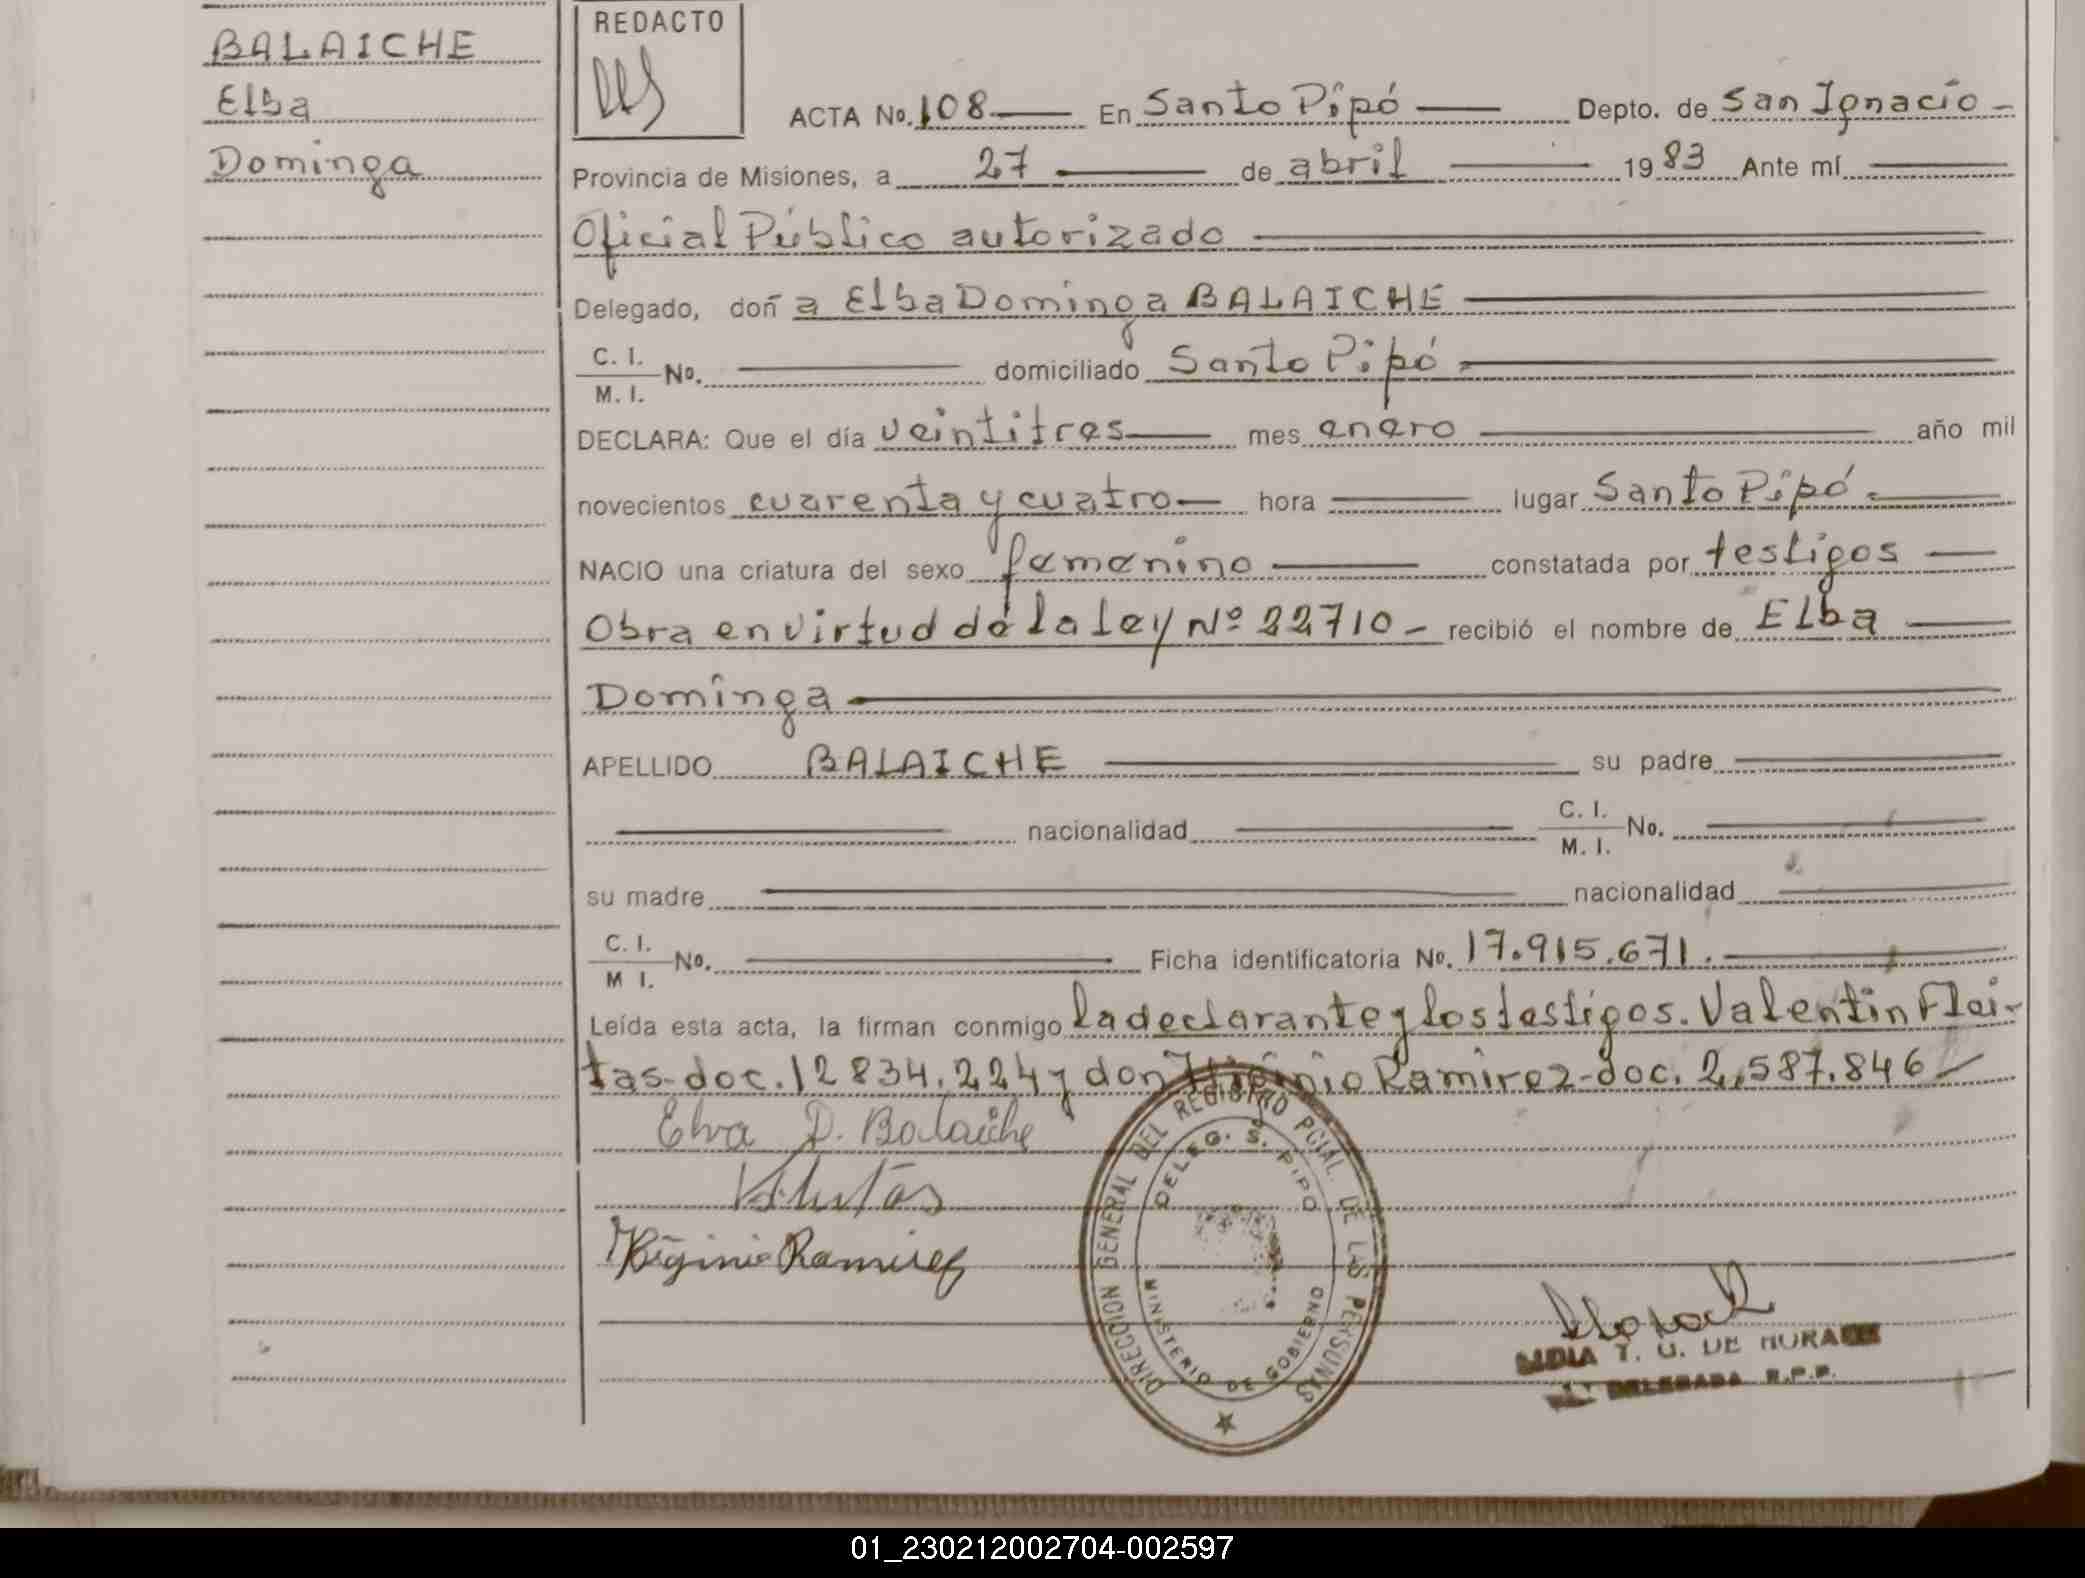 BALAICHE
Elba
Dominga
REDACTO
ACTA No. 108 En Santo Pipó Depto. de San Ignacio
Provincia de Misiones, a 27 de abril 1983 Ante mí
Oficial Público autorizado
Delegado, doña Elba Dominga BALAICHE
C. I.
M. I. No. domiciliado Santo Pipó
DECLARA: Que el día veintitres mes enero año mil
novecientos cuarenta y cuatro hora lugar Santo Pipó
NACIO una criatura del sexo femenino constatada por testigos
Obra en virtud de la ley Nº 22710 - recibió el nombre de Elba
Dominga
APELLIDO BALAICHE su padre
nacionalidad C. I.
M. I. No.
su madre nacionalidad
C. I.
M I. No. Ficha identificatoria No. 17.915.671.
Leída esta acta, la firman conmigo la declarante y los testigos. Valentin Flei-
tas-doc. 12834.224 y don Higinio Ramirez-doc. 2.587.846
Elva D. Balaiche
Higinio Ramirez
DIRECCION GENERAL DEL REGISTRO PCIAL. DE LAS PERSONAS
DELEG. S. PIPO
MINISTERIO DE GOBIERNO
LIDIA T. G. DE MORA
DELEGADA R.P.P.
01_230212002704-002597